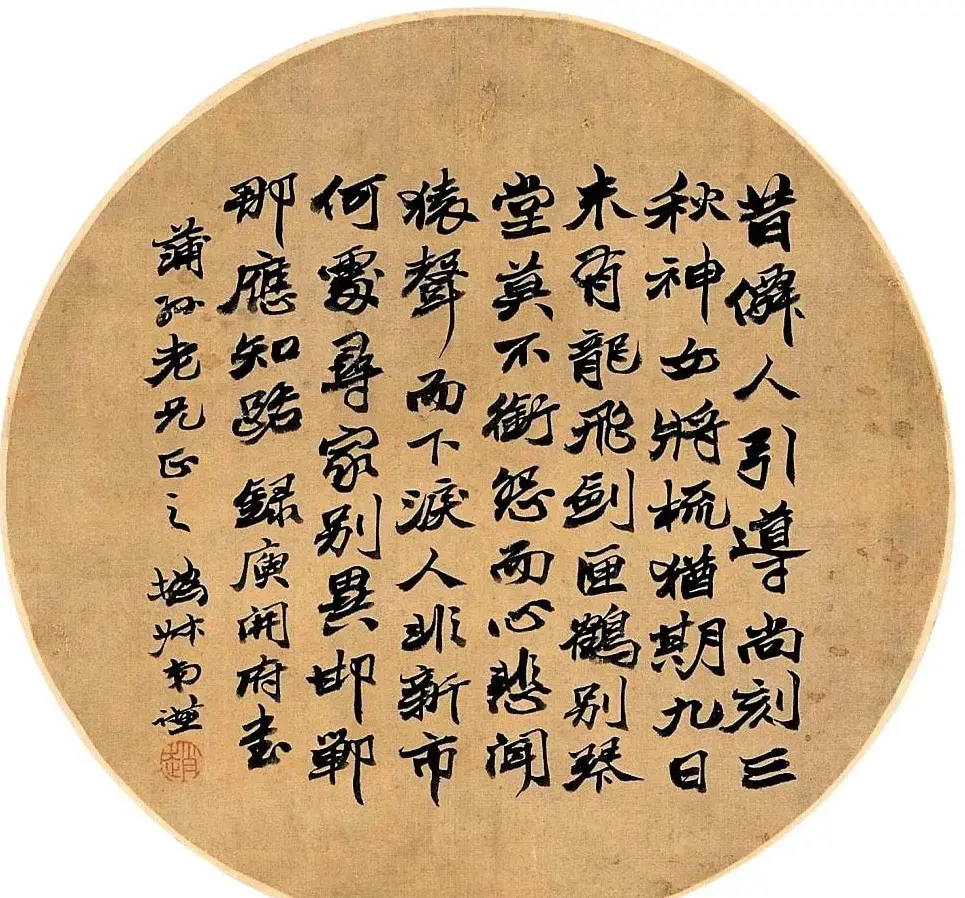 昔僊人引導尚刻三
秋神女將梳猶期九日
未有龍飛劍匣鶴别琴
堂莫不銜怨而心悲聞
猿聲而下淚人非新市
何處尋家别異邯鄲
那應知路 録庾開府書
蒲孫老兄正之 撝叔弟謙